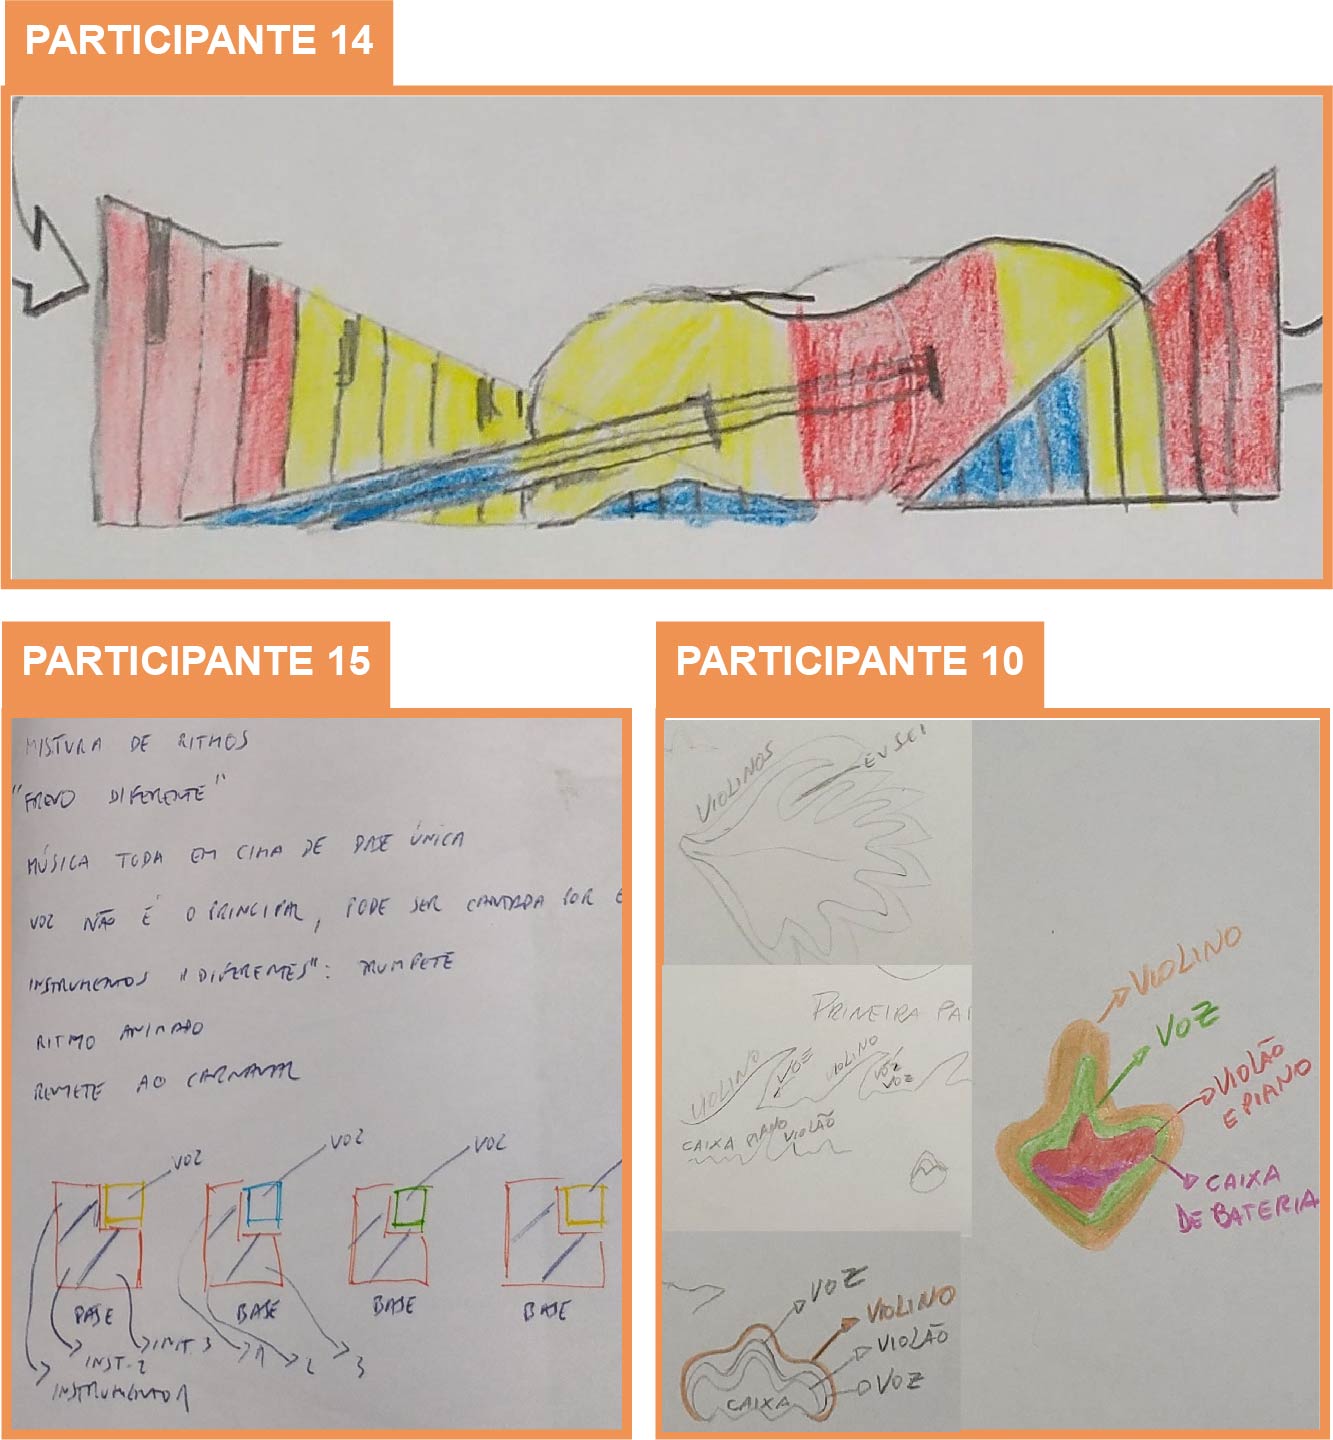 PARTICIPANTE 14
PARTICIPANTE 15
MISTURA DE RITMOS
"FREVO DIFERENTE"
MÚSICA TODA EM CIMA DE BASE ÚNICA
VOZ NÃO É O PRINCIPAL, PODE SER CANTADA POR
INSTRUMENTOS "DIFERENTES": TRUMPETE
RITMO ANIMADO
REMETE AO CARNAVAL
VOZ
VOZ
VOZ
BASE
BASE
BASE
BASE
INST. 3
INST. 2
INSTRUMENTO 1
1
2
3
PARTICIPANTE 10
VIOLINOS
EU SEI
PRIMEIRA PA
VIOLINO
VOZ
VIOLINO
VOZ
VOZ
CAIXA PIANO VIOLÃO
VOZ
VIOLINO
VIOLÃO
VOZ
CAIXA
VIOLINO
VOZ
VIOLÃO
E PIANO
CAIXA
DE BATERIA